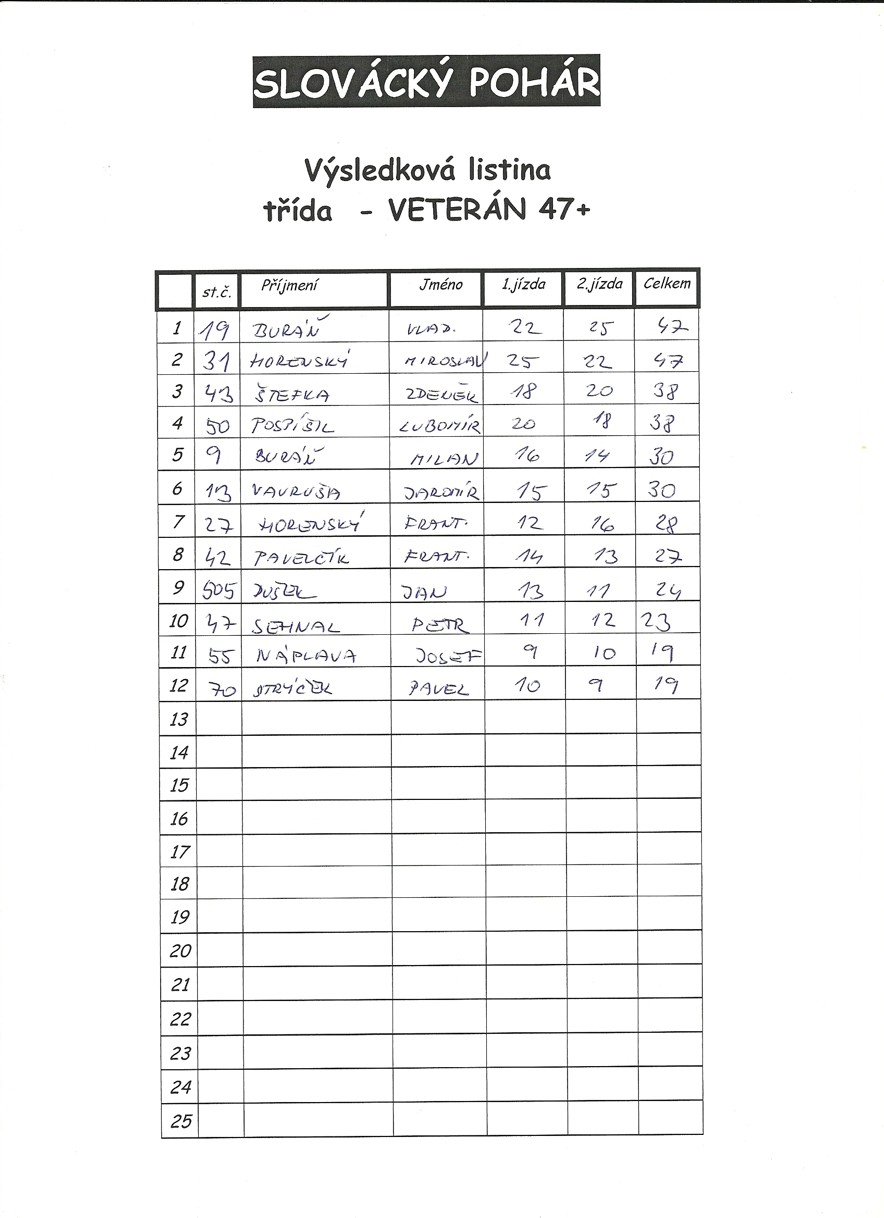 SLOVÁCKÝ POHÁR
Výsledková listina
třída - VETERÁN 47+
st.č. Příjmení Jméno 1.jízda 2.jízda Celkem
1 19 BURÁŇ VLAD. 22 25 47
2 31 HORENSKÝ MIROSLAV 25 22 47
3 43 ŠTEFKA ZDENĚK 18 20 38
4 50 POSPÍŠIL LUBOMÍR 20 18 38
5 9 BURÁŇ MILAN 16 14 30
6 13 VAVRUŠA JAROMÍR 15 15 30
7 27 HORENSKÝ FRANT. 12 16 28
8 42 PAVELČÍK FRANT. 14 13 27
9 505 DUŠEK JAN 13 11 24
10 47 SEHNAL PETR 11 12 23
11 55 NÁPLAVA JOSEF 9 10 19
12 70 STRÝČEK PAVEL 10 9 19
13
14
15
16
17
18
19
20
21
22
23
24
25